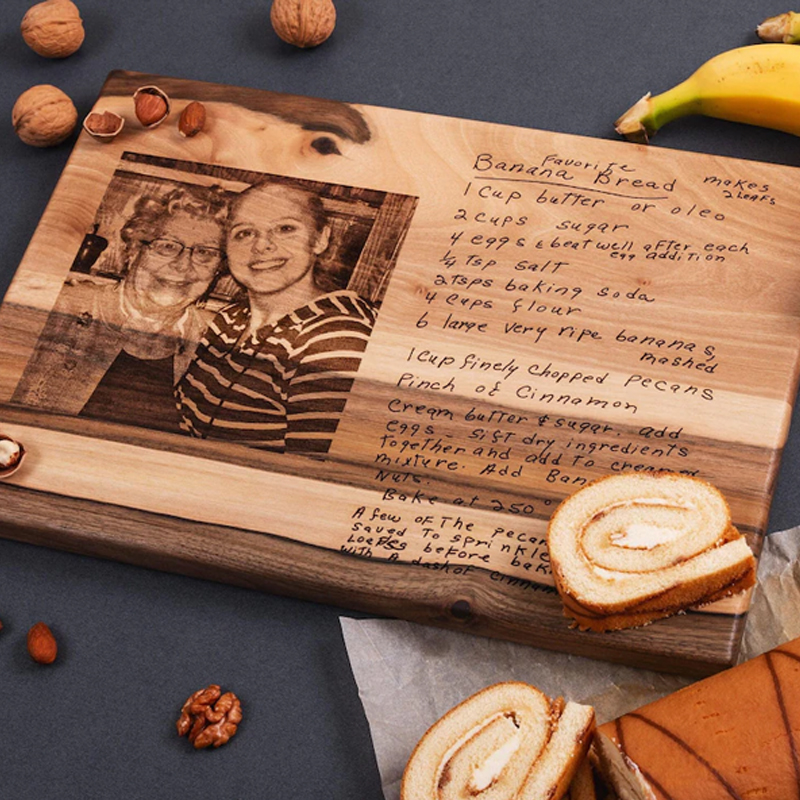 Favorite
Banana Bread makes
2 LEAFS
1 Cup butter or oleo
2 cups sugar
4 eggs & beat well after each
egg addition
1/4 Tsp salt
2 Tsps baking soda
4 Cups flour
6 large very ripe bananas,
mashed
1 Cup finely chopped pecans
Pinch of Cinnamon
Cream butter & sugar. add
eggs - sift dry ingredients
together and add to creamed
mixture. Add
Nuts.
Bake at 250°
A few of The
saved To sprinkle
Loaves before
with A dash of